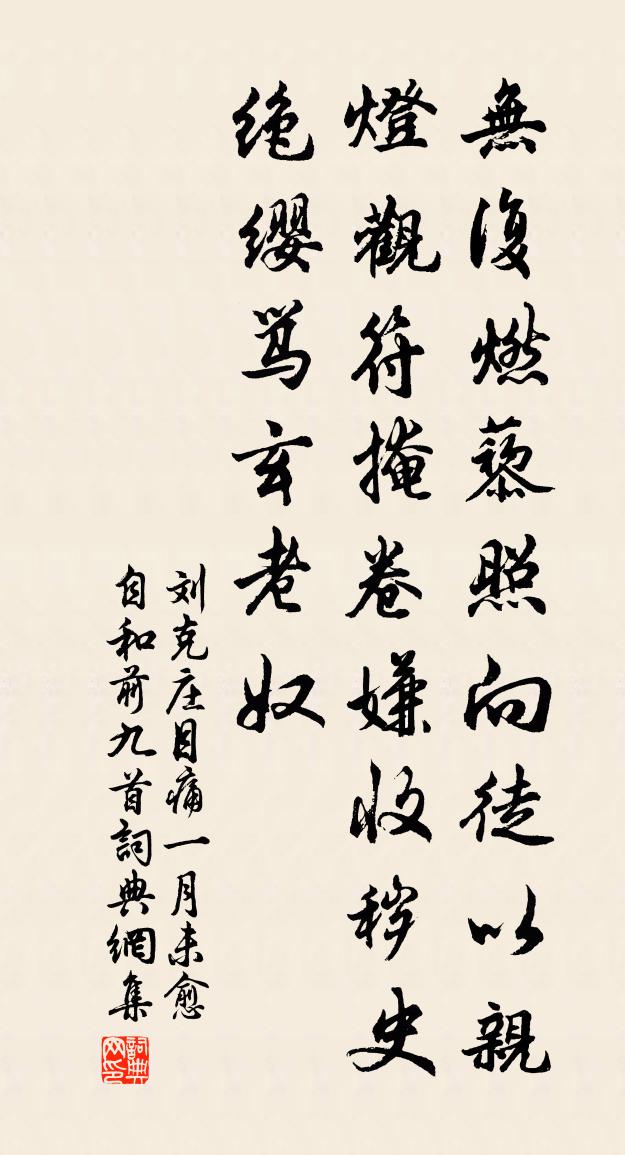 無復燃藜照向徒以親
燈觀符掩卷嫌收秽史
绝缨骂玄老奴
刘克庄目痛一月未愈
自和前九首詞典網集
詞典网印